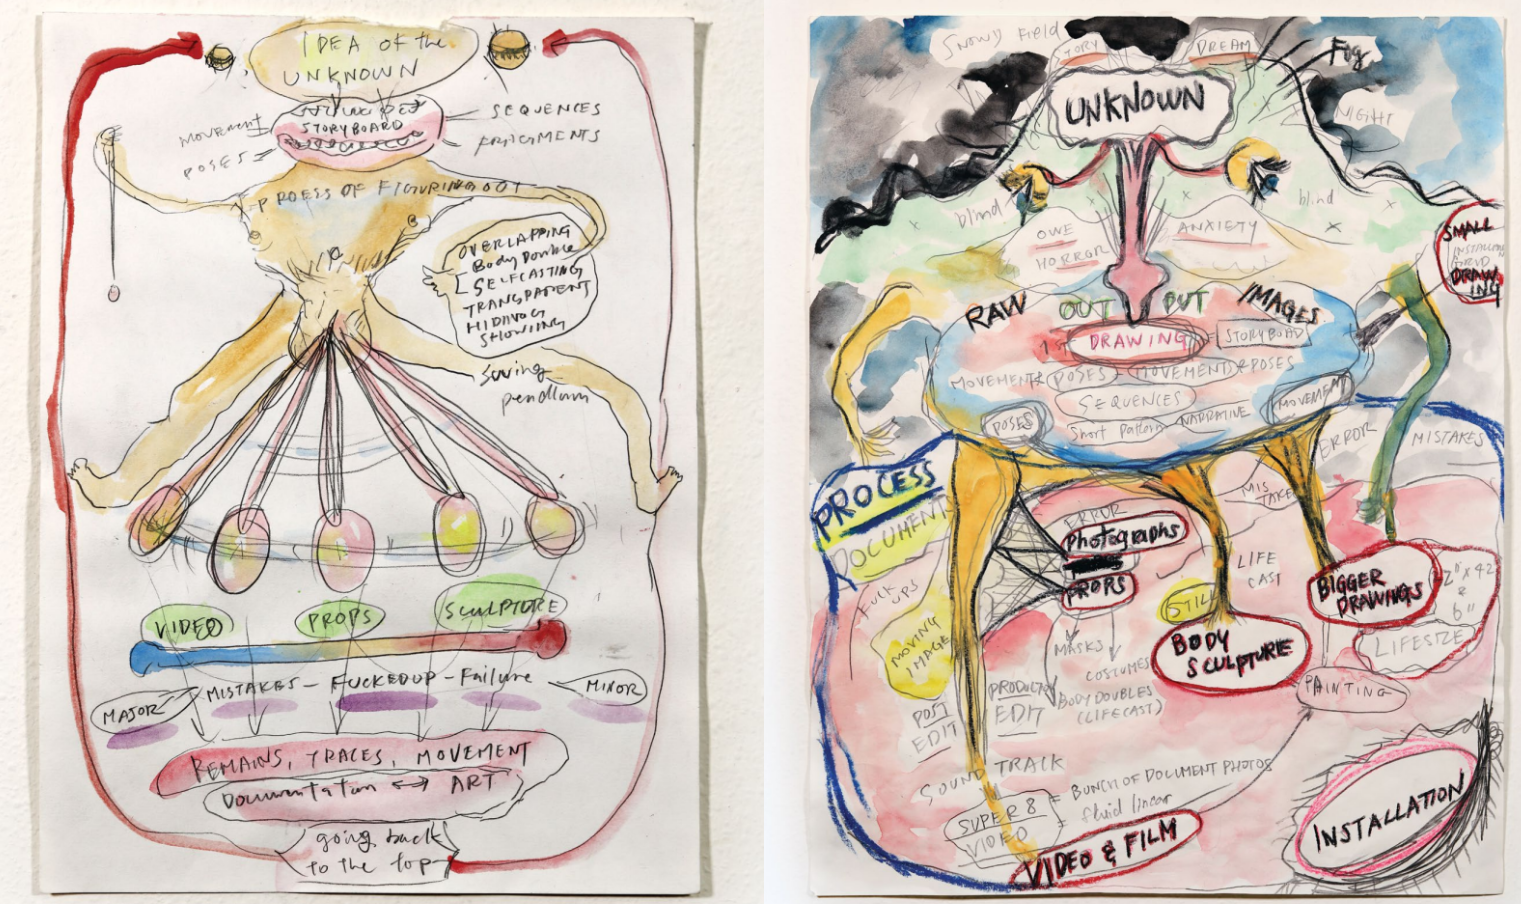 IDEA OF the
UNKNOWN
STORYBOARD
MOVEMENT
POSES
SEQUENCES
FRAGMENTS
PROESS OF FIGURING OUT
OVERLAPPING
Body Double
SELFCASTING
TRANSPARENT
HIDING
SHOWING
Swing
pendlum
VIDEO
PROPS
SCULPTURE
MISTAKES - FUCKEDUP - Failure
MAJOR
MINOR
REMAINS, TRACES, MOVEMENT
Documentation ↔ ART
going back
to the top
SNOWD Field
STORY
DREAM
Fog
UNKNOWN
NIGHT
blind
blind
OWE
HORROR
ANXIETY
SMALL
DRAW
ING
RAW OUT PUT IMAGES
1st DRAWING
STORYBOAD
MOVEMENT & POSES - MOVEMENTS & POSES
SEQUENCES
Short Pattern NARRATIVE
POSES
MOVEMENT
ERROR
MISTAKES
PROCESS
DOCUMENT
MIS
TAKE
ERROR
Photographs
PROPS
LIFE
CAST
BIGGER
DRAWINGS
2" x 42
&
6"
LIFESIZE
FUCK
UPS
MOVING
IMAGE
STILL
BODY
SCULPTURE
MASKS
COSTUMES
BODY DOUBLES
(LIFECAST)
PAINTING
EDIT
POST
EDIT
SOUND TRACK
SUPER 8 = BUNCH OF DOCUMENT PHOTOS
VIDEO = fluid linear
VIDEO & FILM
INSTALLATION